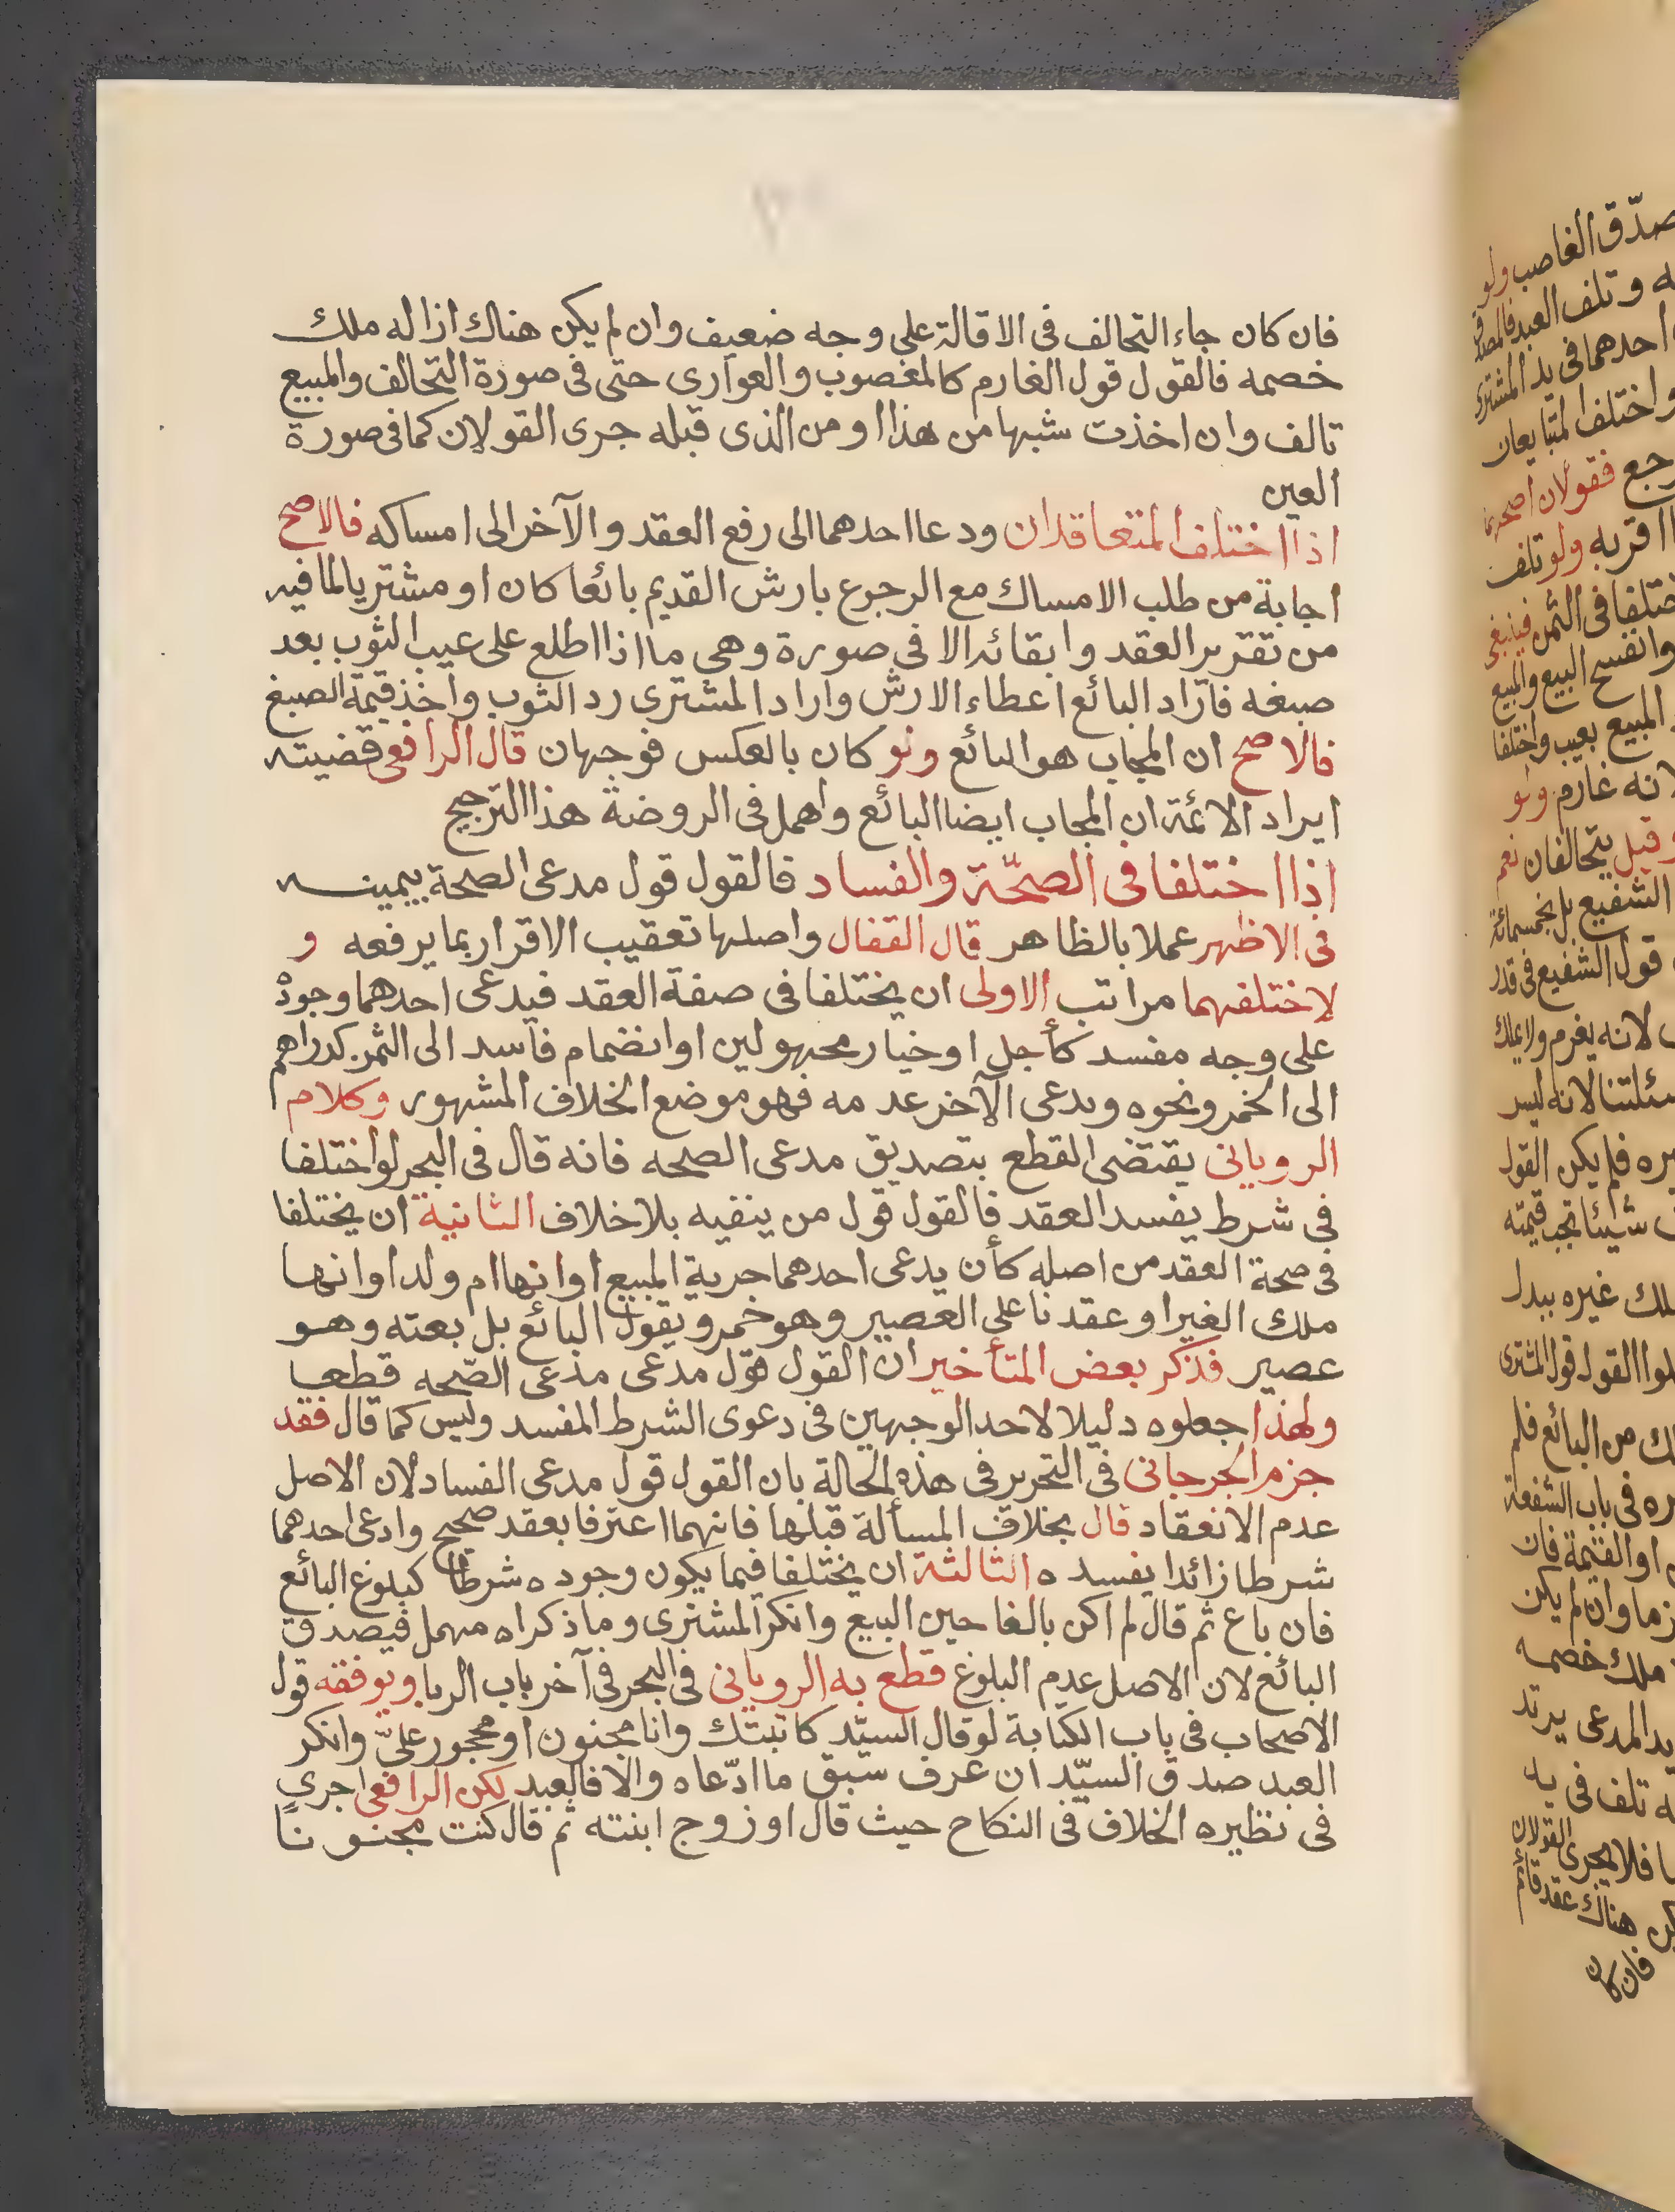 فان كان جاء التحالف فى الاقالة على وجه ضعيف وان لم يكن هناك ازاله ملك
خصمه فالقول قول الغارم كالمغصوب والعوارى حتى فى صورة التحالف والمبيع
تالف وان اخذت شبها من هذا او من الذى قبله جرى القولان كما فى صورة
العين
اذا اختلف المتعاقدان ودعا احدهما الى رفع العقد والآخر الى امساكه فالاصح
اجابة من طلب الامساك مع الرجوع بارش القديم بائعا كان او مشتريا لما فيه
من تقرير العقد وابقائه الا فى صورة وهى ما اذا اطلع على عيب الثوب بعد
صبغه فاراد البائع اعطاء الارش واراد المشترى رد الثوب واخذ قيمة الصبغ
فالاصح ان المجاب هو البائع ولو كان بالعكس فوجهان قال الرافعى قضيته
ايراد الائمة ان المجاب ايضا البائع واهمل فى الروضة هذا الترجيح
اذا اختلفا فى الصحّة والفساد فالقول قول مدعى الصحة بيمينه
فى الاظهر عملا بالظاهر قال القفال واصلها تعقيب الاقرار بما يرفعه و
لاختلفهما مراتب الاولى ان يختلفا فى صفة العقد فيدعى احدهما وجوده
على وجه مفسد كأجل او خيار مجهولين او انضمام فاسد الى الثمن كدراهم
الى الخمر ونحوه ويدعى الآخر عدمه فهو موضع الخلاف المشهور وكلام
الرويانى يقتضى القطع بتصديق مدعى الصحه فانه قال فى البحر لو اختلفا
فى شرط يفسد العقد فالقول قول من ينفيه بلا خلاف الثانية ان يختلفا
فى صحة العقد من اصله كأن يدعى احدهما حرية المبيع او انها ام ولد او انها
ملك الغير او عقدنا على العصير وهو خمر ويقول البائع بل بعته وهو
عصير فذكر بعض المتأخير ان القول قول مدعى مدعى الصّحه قطعا
ولهذا جعلوه دليلا لاحد الوجهين فى دعوى الشرط المفسد وليس كما قال فقد
جزم الجرجانى فى التحرير فى هذه الحالة بان القول قول مدعى الفساد لان الاصل
عدم الانعقاد قال بخلاف المسألة قبلها فانهما اعترفا بعقد صحيح وادعى احدهما
شرطا زائدا يفسده الثالثة ان يختلفا فيما يكون وجوده شرطا كبلوغ البائع
فان باع ثم قال لم اكن بالغا حين البيع وانكر المشترى وما ذكراه مهمل فيصدق
البائع لان الاصل عدم البلوغ قطع به الرويانى فى البحر فى آخر باب الربا ويوفقه قول
الاصحاب فى باب الكتابة لو قال السيّد كاتبتك وانا مجنون او محجور علىّ وانكر
العبد صدق السيّد ان عرف سبق ما ادّعاه والا فالعبد لكن الرافعى اجرى
فى نظيره الخلاف فى النكاح حيث قال او زوج ابنته ثم قال كنت مجنونًا